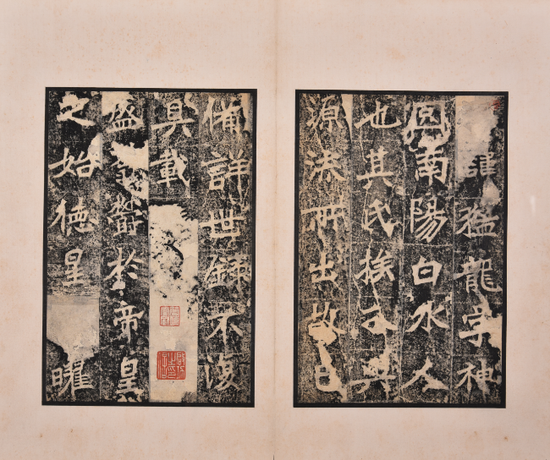 諱猛龍字神
冏南陽白水人
也其氏族分興
源流所出故已
備詳世錄不復
具載
盛鬱於帝皇
之始德星曜